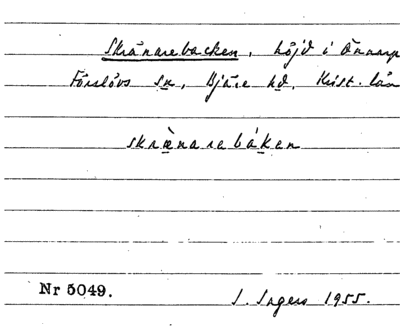 Skränarebacken, höjd i Önnarp
Förslövs sn, Bjäre hd, Krist. län
skrænarebáken
Nr 5049.
S. Ingers 1955.